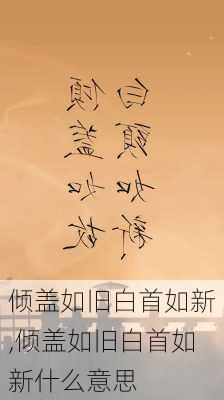 白頭如新
傾蓋如故
倾盖如旧白首如新
,倾盖如旧白首如
新什么意思